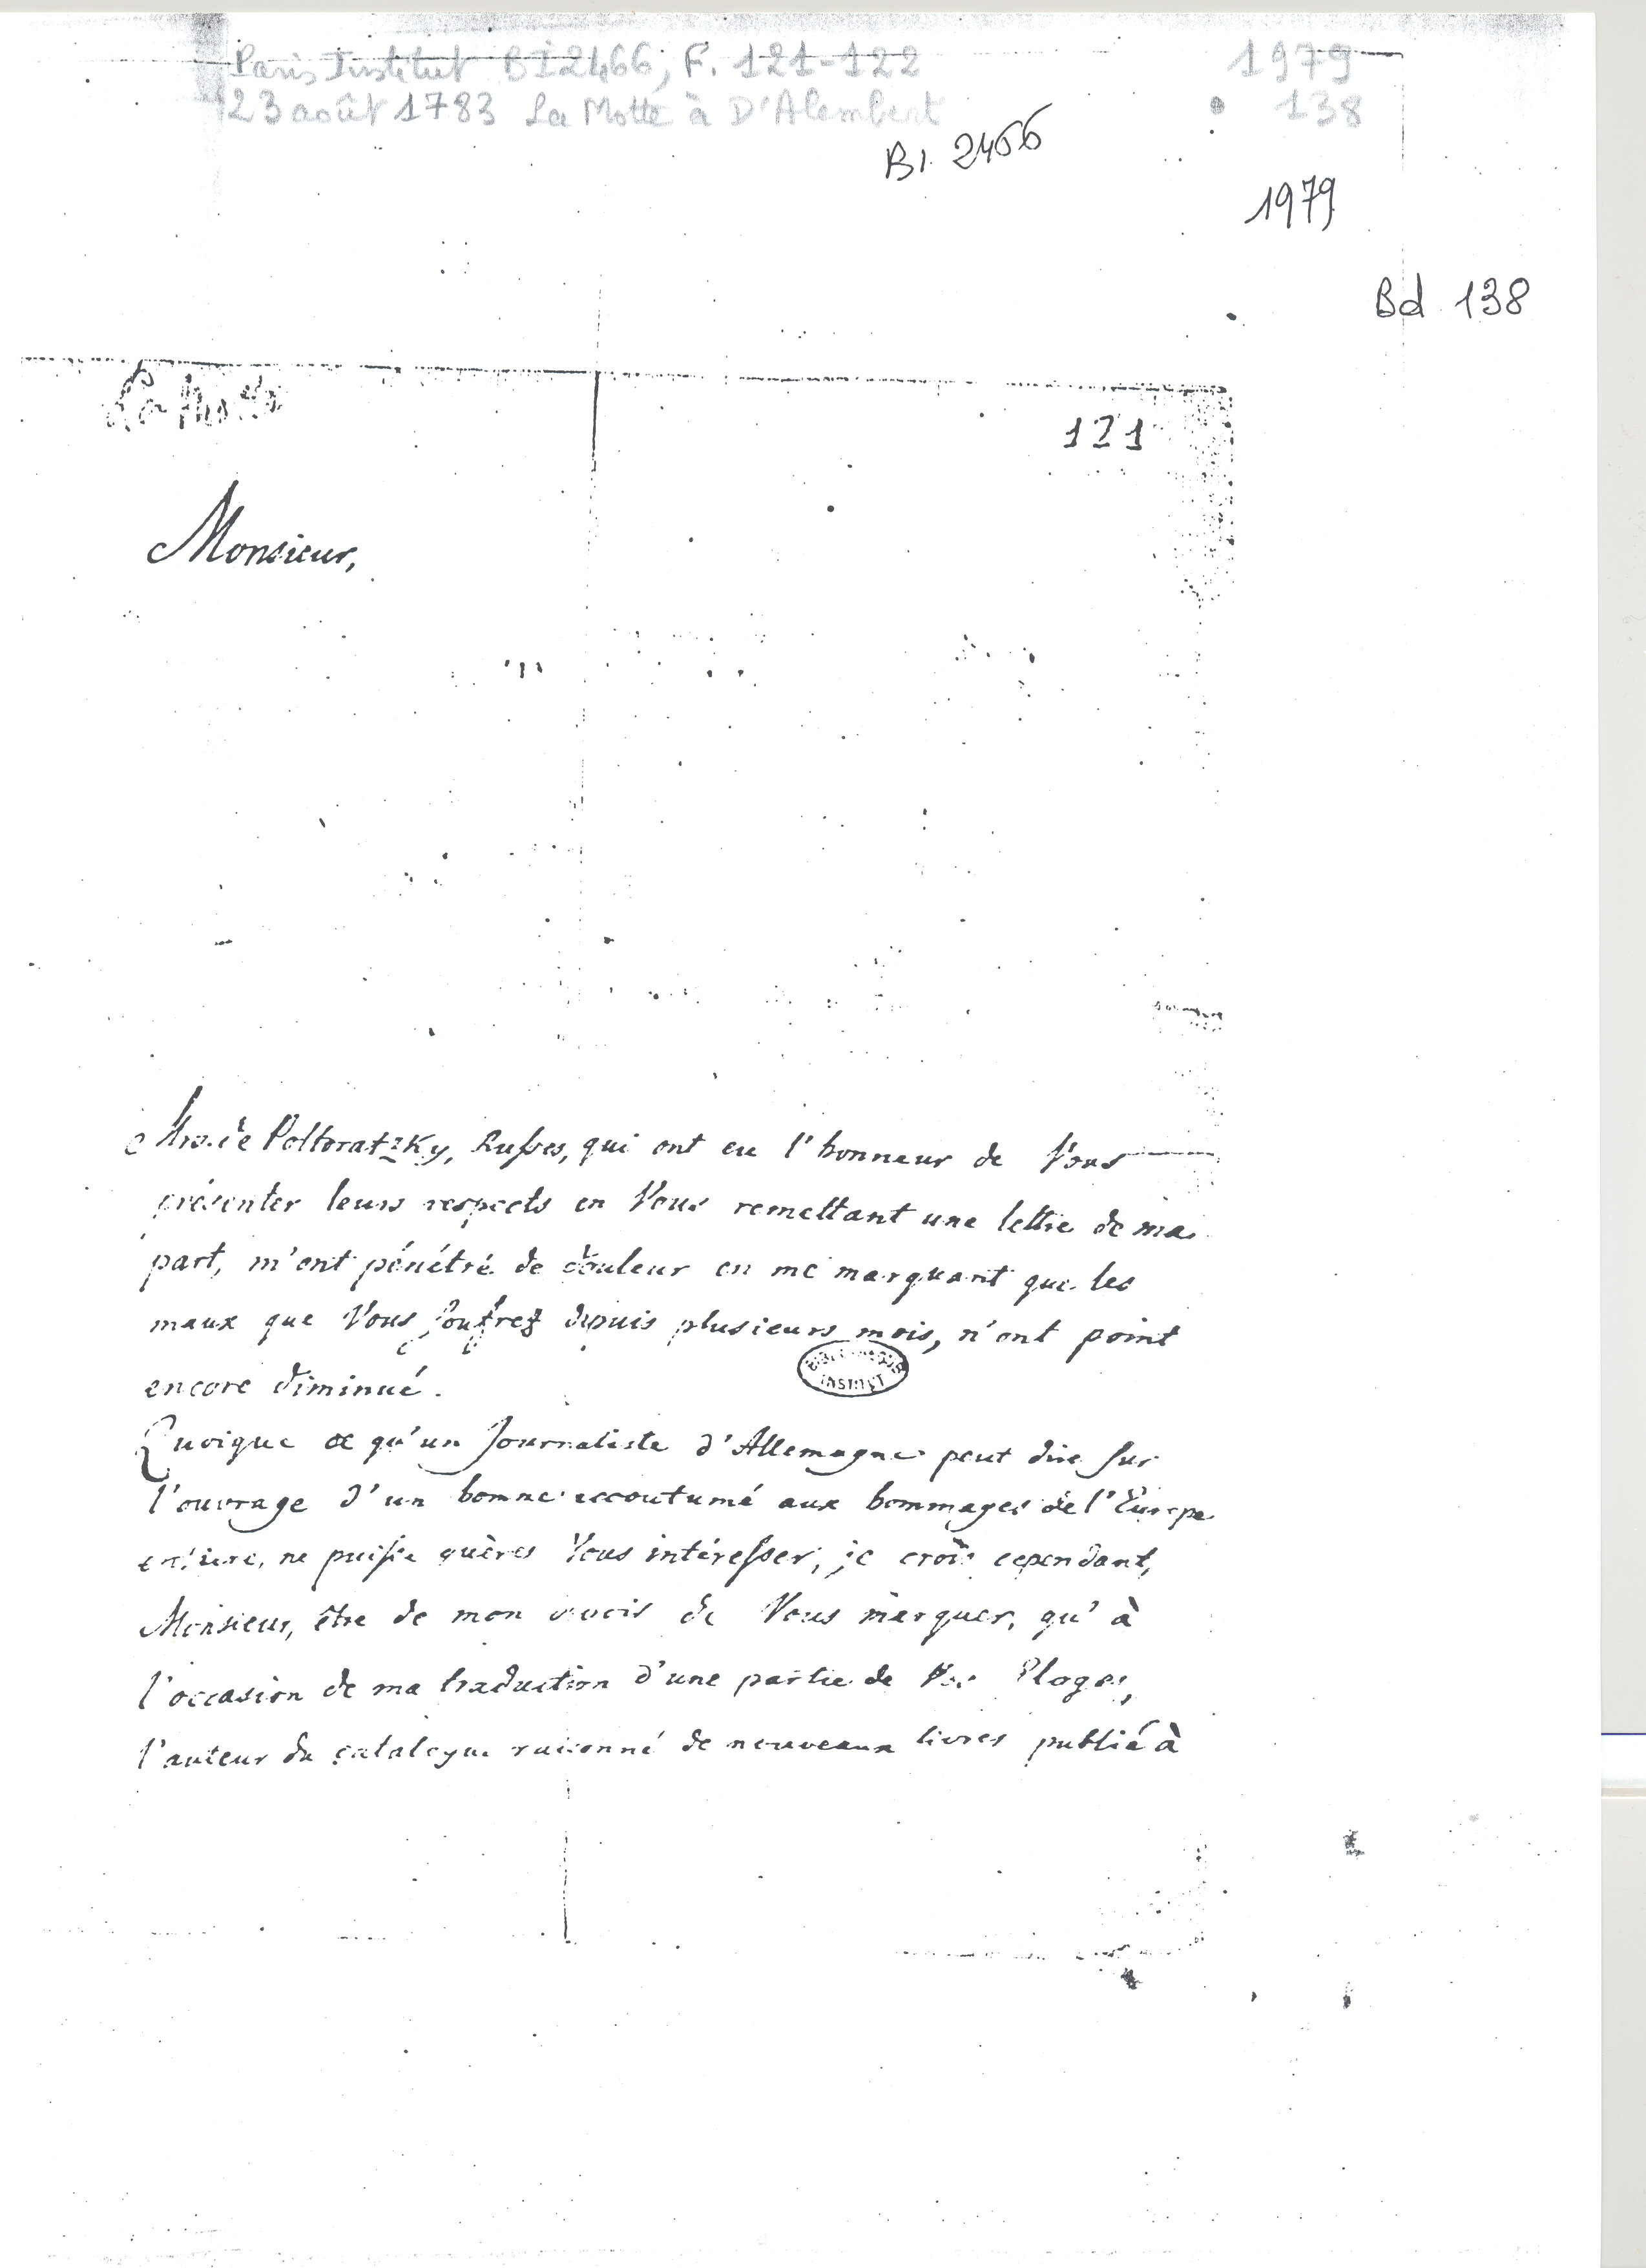 Paris Institut BI 2466, F. 121-122
1979
23 août 1783 La Motte à D'Alembert
138
BI. 2466
1979
Bd 138
La Motte
121
Monsieur,
Mrs. de Poltoratzky, Russes, qui ont eu l'honneur de Vous
présenter leurs respects en Vous remettant une lettre de ma
part, m'ont pénétré de douleur en me marquant que les
maux que Vous soufrez depuis plusieurs mois, n'ont point
encore diminué.
BIBLIOTHEQUE INSTITUT
Quoique ce qu'un Journaliste d'Allemagne peut dire sur
l'ouvrage d'un homme accoutumé aux hommages de l'Europe
entiere, ne puisse guères Vous intéresser, je crois cependant,
Monsieur, être de mon devoir de Vous marquer, qu'à
l'occasion de ma traduction d'une partie de Vos Eloges,
l'auteur du catalogue raisonné de nouveaux livres publié à